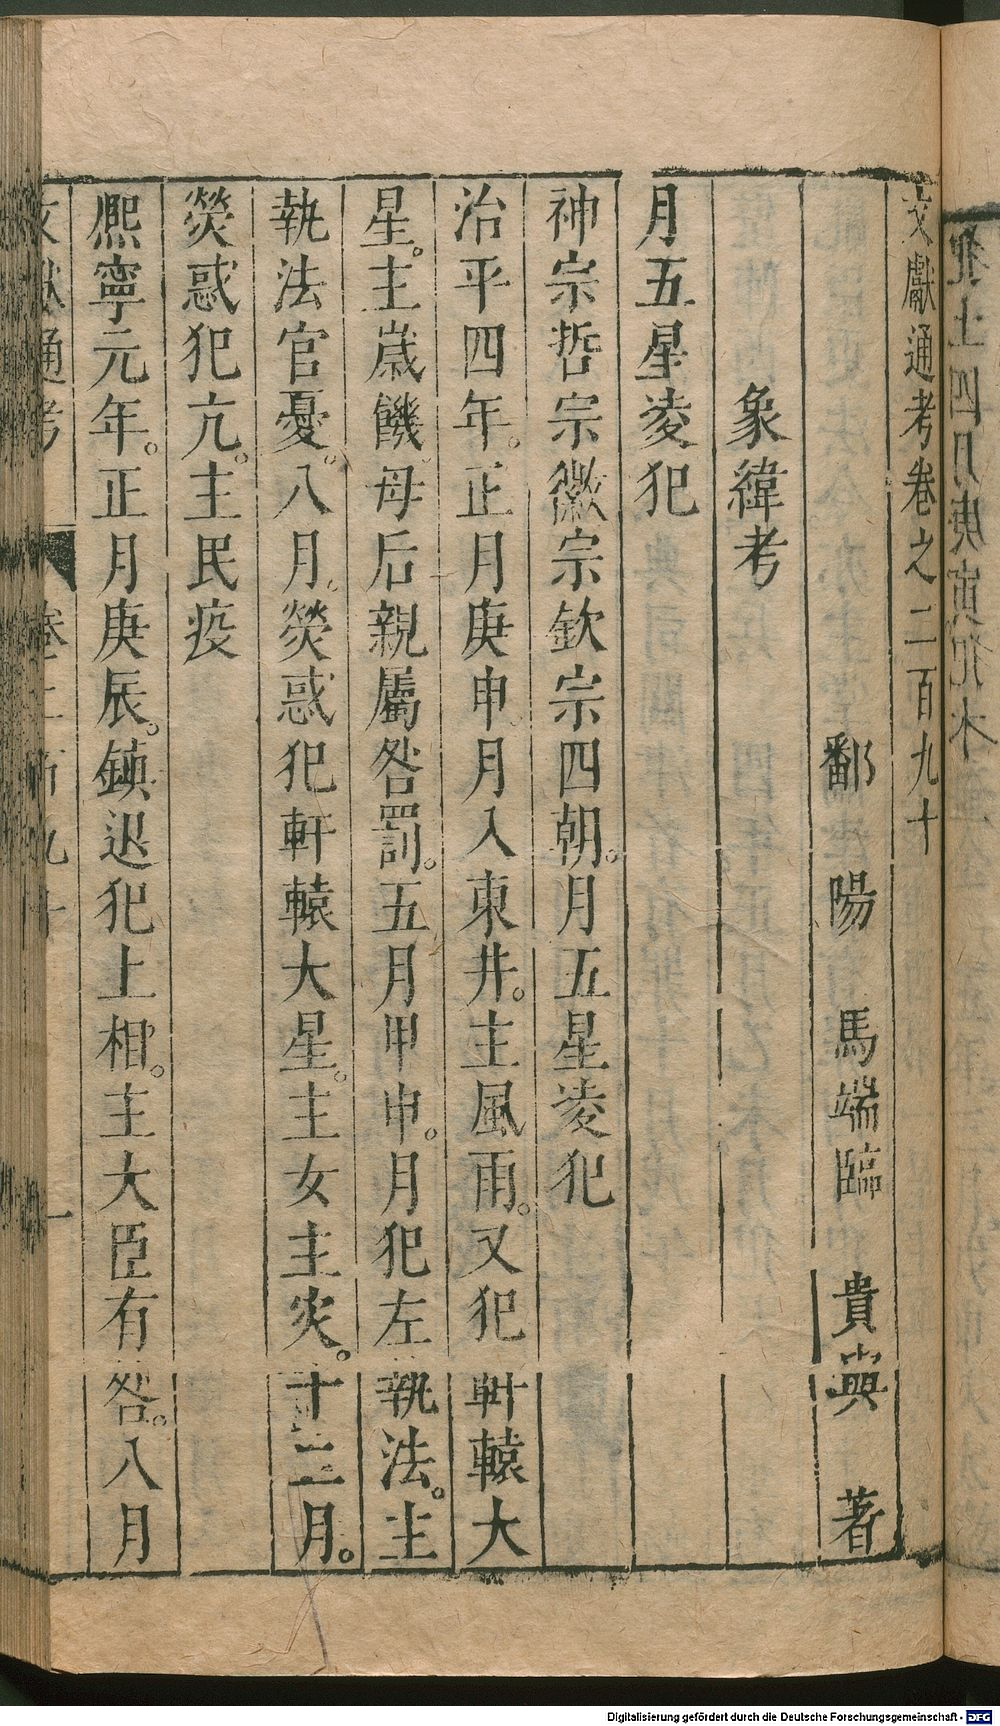 文獻通考卷之二百九十
鄱陽　馬端臨　貴與　著
象緯考
月五星凌犯
神宗哲宗徽宗欽宗四朝。月五星凌犯
治平四年。正月庚申。月入東井。主風雨。又犯軒轅大
星。主嵗饑。母后親屬咎罰。五月甲申。月犯左執法。主
執法官憂。八月。熒惑犯軒轅大星。主女主灾。十二月。
熒惑犯亢。主民疫
熈寧元年。正月庚辰。鎮退犯上相。主大臣有咎。八月
文獻通考　卷二百九十　一
四月庚寅犯木
Digitalisierung gefördert durch die Deutsche Forschungsgemeinschaft - DFG